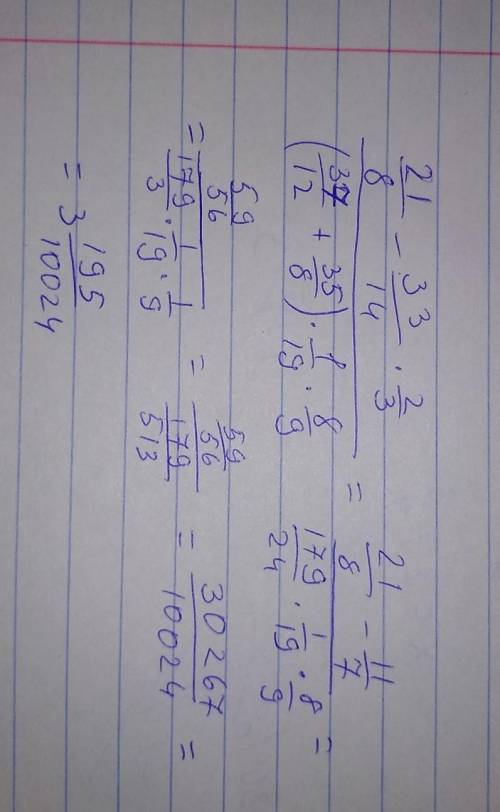 (21/8 - 33/14 · 2/3) / ((37/12 + 35/8) · 1/19 · 8/9) = (21/8 - 11/7) / (179/24 · 1/19 · 8/9) =
= (59/56) / (179/3 · 1/19 · 1/9) = (59/56) / (179/513) = 30267/10024 =
= 3 195/10024